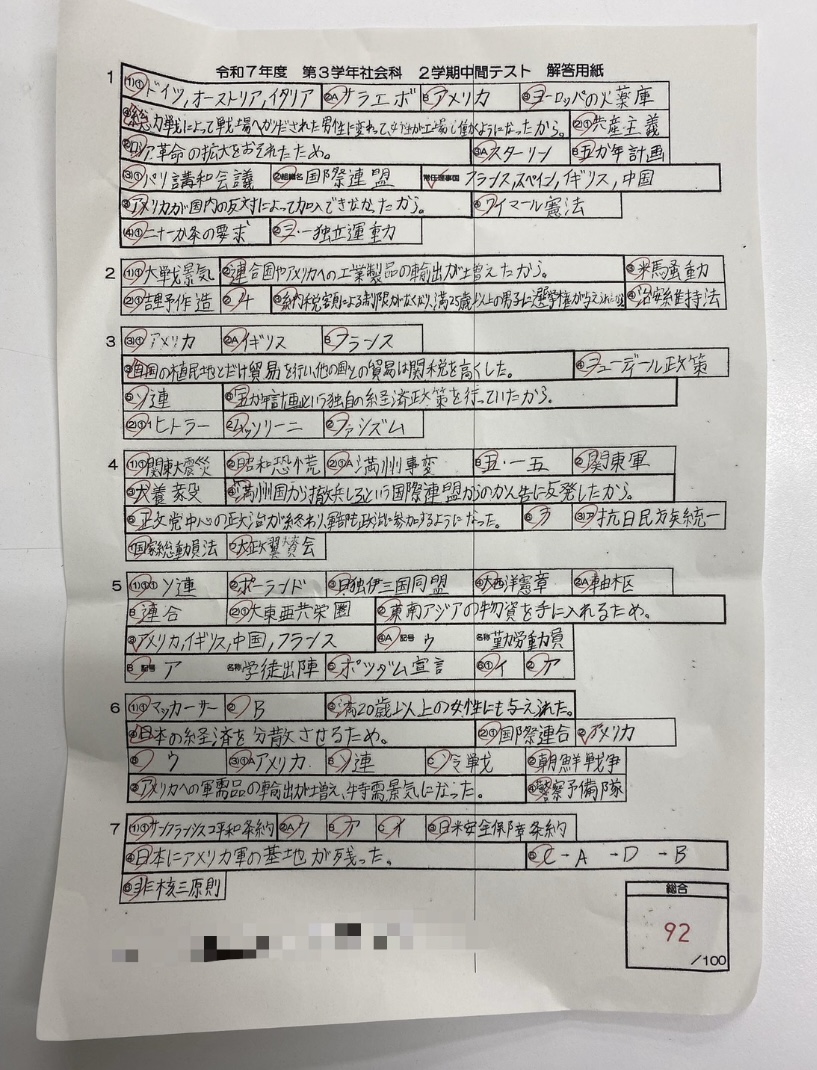 令和7年度 第3学年社会科 2学期中間テスト 解答用紙
1 (1)① ドイツ,オーストリア,イタリア ②A サラエボ B アメリカ ③ ヨーロッパの火薬庫
④ 総力戦によって戦場へかりだされた男性に変わって、女性が工場で働くようになったから。 (2)① 共産主義
② ロシア革命の拡大をおそれたため。 ③A スターリン B 五か年計画
(3)① パリ講和会議 ②組織名 国際連盟 常任理事国 フランス,スペイン,イギリス,中国
③ アメリカが国内の反対によって加入できなかったから。 ④ ワイマール憲法
(4)① 二十一か条の要求 ② 三・一独立運動
2 (1)① 大戦景気 ② 連合国やアメリカへの工業製品の輸出が増えたから。 ③ 米騒動
(2)① 吉野作造 ② 4 ③ 納税額による制限がなくなり、満25歳以上の男子に選挙権が与えられた ④ 治安維持法
3 (1)① アメリカ ②A イギリス B フランス
③ 自国の植民地とだけ貿易を行い、他の国との貿易は関税を高くした。 ④ ニューディール政策
⑤ ソ連 ⑥ 五か年計画という独自の経済政策を行っていたから。
(2)① ヒトラー ムッソリーニ ② ファシズム
4 (1)① 関東大震災 ② 昭和恐慌 (2)①A 満州事変 B 五・一五 ② 関東軍
③ 犬養毅 ④ 満州国から撤兵しろという国際連盟からのかん告に反発したから。
⑤ 政党中心の政治が終わり、軍部も政治に参加するようになった。 ⑥ ウ (3)ア 抗日民族統一
国家総動員法 大政翼賛会
5 (1)① ソ連 ② ポーランド ③ 日独伊三国同盟 ④ 大西洋憲章 ②A 枢軸
B 連合 (2)① 大東亜共栄圏 ② 東南アジアの物資を手に入れるため。
③ アメリカ,イギリス,中国,フランス ④A 記号 ウ 名称 勤労動員
B 記号 ア 名称 学徒出陣 ⑤ ポツダム宣言 ⑥① イ ② ア
6 (1)① マッカーサー ② B ③ 満20歳以上の女性にも与えられた。
④ 日本の経済を分散させるため。 (2)① 国際連合 ② アメリカ
③ ウ (3)①A アメリカ B ソ連 C 冷戦 ② 朝鮮戦争
③ アメリカへの軍需品の輸出が増え、特需景気になった。 ④ 警察予備隊
7 (1)① サンフランシスコ平和条約 ②A ウ B ア C イ ③ 日米安全保障条約
④ 日本にアメリカ軍の基地が残った。 ⑤ C → A → D → B
⑥ 非核三原則
総合
92
/100